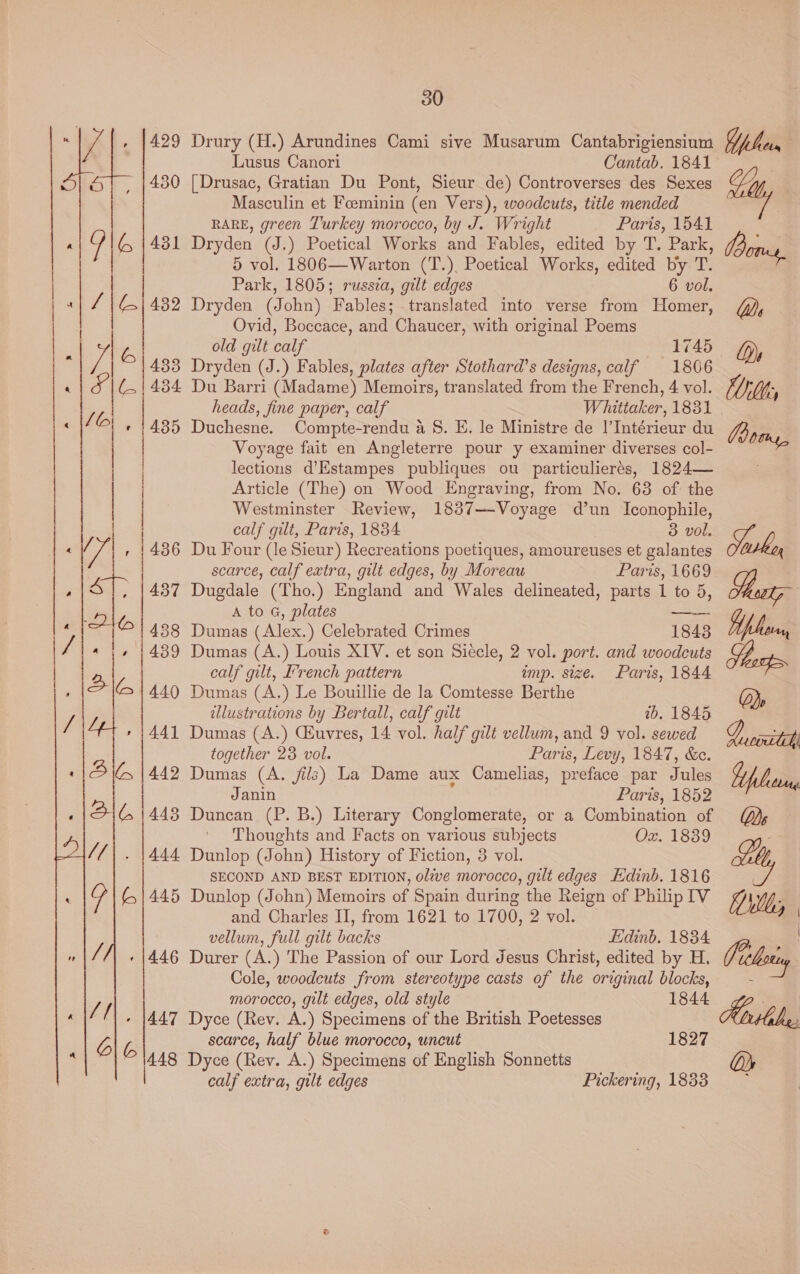 30
429 Drury (H.) Arundines Cami sive Musarum Cantabrigiensium
Lusus Canori Cantab. 1841
430 [Drusac, Gratian Du Pont, Sieur de) Controverses des Sexes Lilly
Masculin et Fœminin (en Vers), woodcuts, title mended
RARE, green Turkey morocco, by J. Wright Paris, 1541
" 9 6 431 Dryden (J.) Poetical Works and Fables, edited by T. Park, Boone
5 vol. 1806—Warton (T.) Poetical Works, edited by T.
Park, 1805; russia, gilt edges 6 vol.
" 1 6 432 Dryden (John) Fables; translated into verse from Homer, Do
Ovid, Boccace, and Chaucer, with original Poems
old gilt calf 1745
433 Dryden (J.) Fables, plates after Stothard's designs, calf 1806 Do
434 Du Barri (Madame) Memoirs, translated from the French, 4 vol. Willis
heads, fine paper, calf Whittaker, 1831
435 Duchesne. Compte-rendu à S. E. le Ministre de l'Intérieur du Boone
Voyage fait en Angleterre pour y examiner diverses col-
lections d'Estampes publiques ou particulierès, 1824—
Article (The) on Wood Engraving, from No. 63 of the
Westminster Review, 1837—Voyage d'un Iconophile,
calf gilt, Paris, 1834 3 vol.
436 Du Four (le Sieur) Recreations poetiques, amoureuses et galantes
scarce, calf extra, gilt edges, by Moreau Paris, 1669
437 Dugdale (Tho.) England and Wales delineated, parts 1 to 5,
A to G, plates ——
438 Dumas (Alex.) Celebrated Crimes 1843
439 Dumas (A.) Louis XIV. et son Siècle, 2 vol. port. and woodcuts
calf gilt, French pattern imp. size. Paris, 1844
440 Dumas (A.) Le Bouillie de la Comtesse Berthe Do
illustrations by Bertall, calf gilt ib. 1845
441 Dumas (A.) Œuvres, 14 vol. half gilt vellum, and 9 vol. sewed
together 23 vol. Paris, Levy, 1847, &c.
442 Dumas (A. fils) La Dame aux Camelias, preface par Jules
Janin Paris, 1852
443 Duncan (P. B.) Literary Conglomerate, or a Combination of Do
Thoughts and Facts on various subjects Ox. 1839
444 Dunlop (John) History of Fiction, 3 vol. Lilly
SECOND AND BEST EDITION, olive morocco, gilt edges Edinb. 1816
" 9 6 445 Dunlop (John) Memoirs of Spain during the Reign of Philip IV Willis
and Charles II, from 1621 to 1700, 2 vol.
vellum, full gilt backs Edinb. 1834
446 Durer (A.) The Passion of our Lord Jesus Christ, edited by H. Pickering
Cole, woodcuts from stereotype casts of the original blocks,
morocco, gilt edges, old style 1844
447 Dyce (Rev. A.) Specimens of the British Poetesses
scarce, half blue morocco, uncut 1827
" 6 6 448 Dyce (Rev. A.) Specimens of English Sonnetts Do
calf extra, gilt edges Pickering, 1833